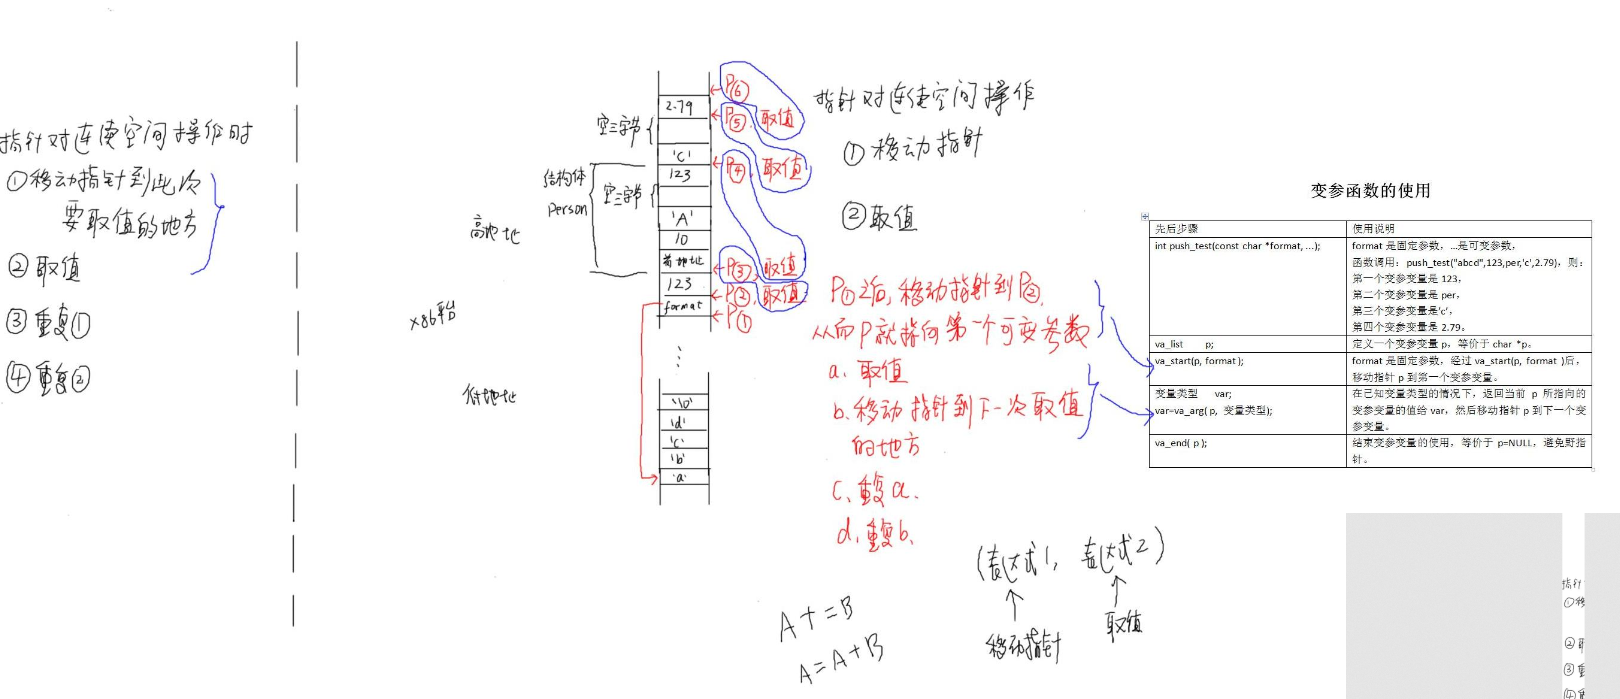 指针对连续空间操作时
①移动指针到此次
要取值的地方
②取值
③重复①
④重复②
高地址
x86平台
低地址
空三字节
结构体
Person
空三字节
2.79
'C'
123
'A'
10
首地址
123
format
'\0'
'd'
'c'
'b'
'a'
P⑥
P⑤,取值
P④,取值
P③,取值
P②,取值
P①
指针对连续空间操作
①移动指针
②取值
P①之后,移动指针到P②,
从而P就指向第一个可变参数
a、取值
b、移动指针到下一次取值
的地方
c、重复a、
d、重复b、
(表达式1, 表达式2)
移动指针
取值
A+=B
A=A+B
变参函数的使用
先后步骤 使用说明
int push_test(const char *format, ...); format 是固定参数，...是可变参数，
函数调用：push_test("abcd",123,per,'c',2.79)，则：
第一个变参变量是 123，
第二个变参变量是 per，
第三个变参变量是'c'，
第四个变参变量是 2.79。
va_list p; 定义一个变参变量 p，等价于 char *p。
va_start(p, format ); format 是固定参数，经过 va_start(p, format )后，
移动指针 p 到第一个变参变量。
变量类型 var; 在已知变量类型的情况下，返回当前 p 所指向的
var=va_arg( p, 变量类型); 变参变量的值给 var，然后移动指针 p 到下一个变
参变量。
va_end( p ); 结束变参变量的使用，等价于 p=NULL，避免野指
针。
指针
①移
②取
③重
④重